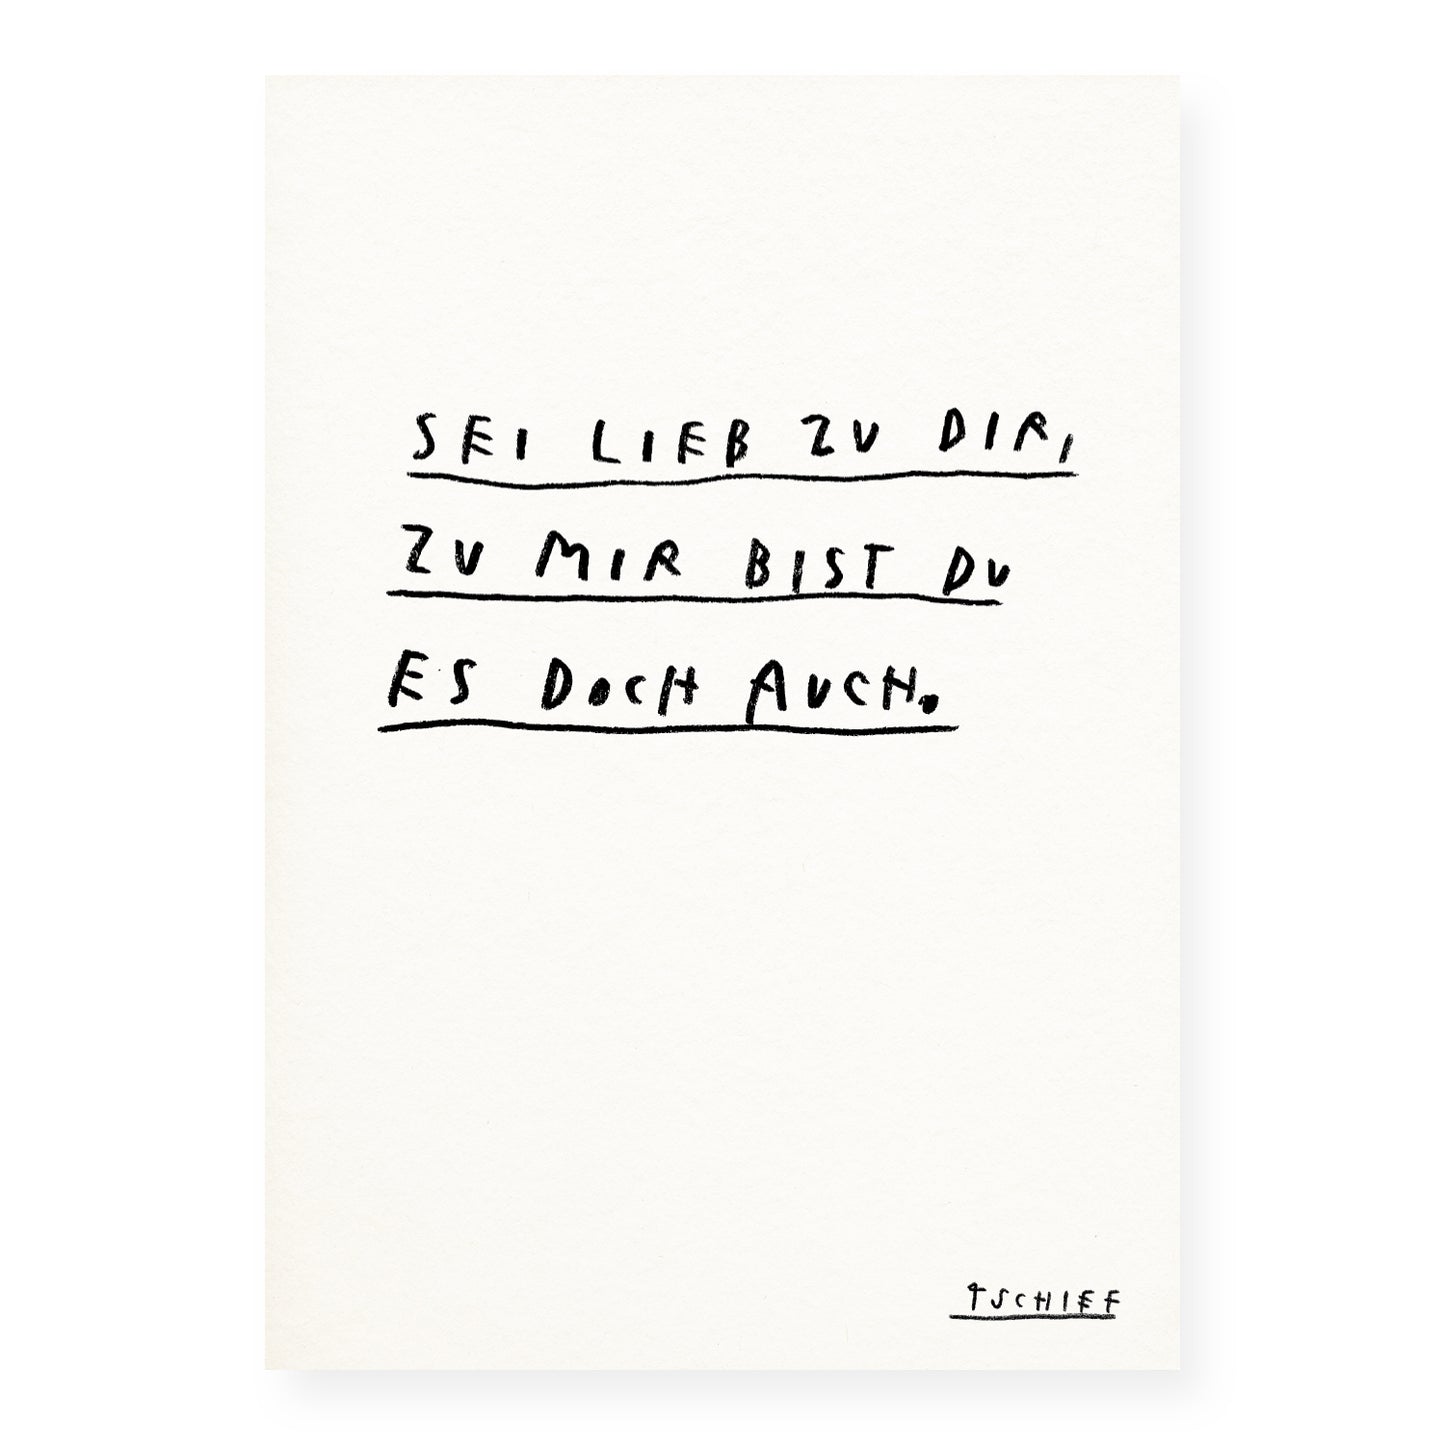 SEI LIEB ZU DIR,
ZU MIR BIST DU
ES DOCH AUCH.
TSCHIEF